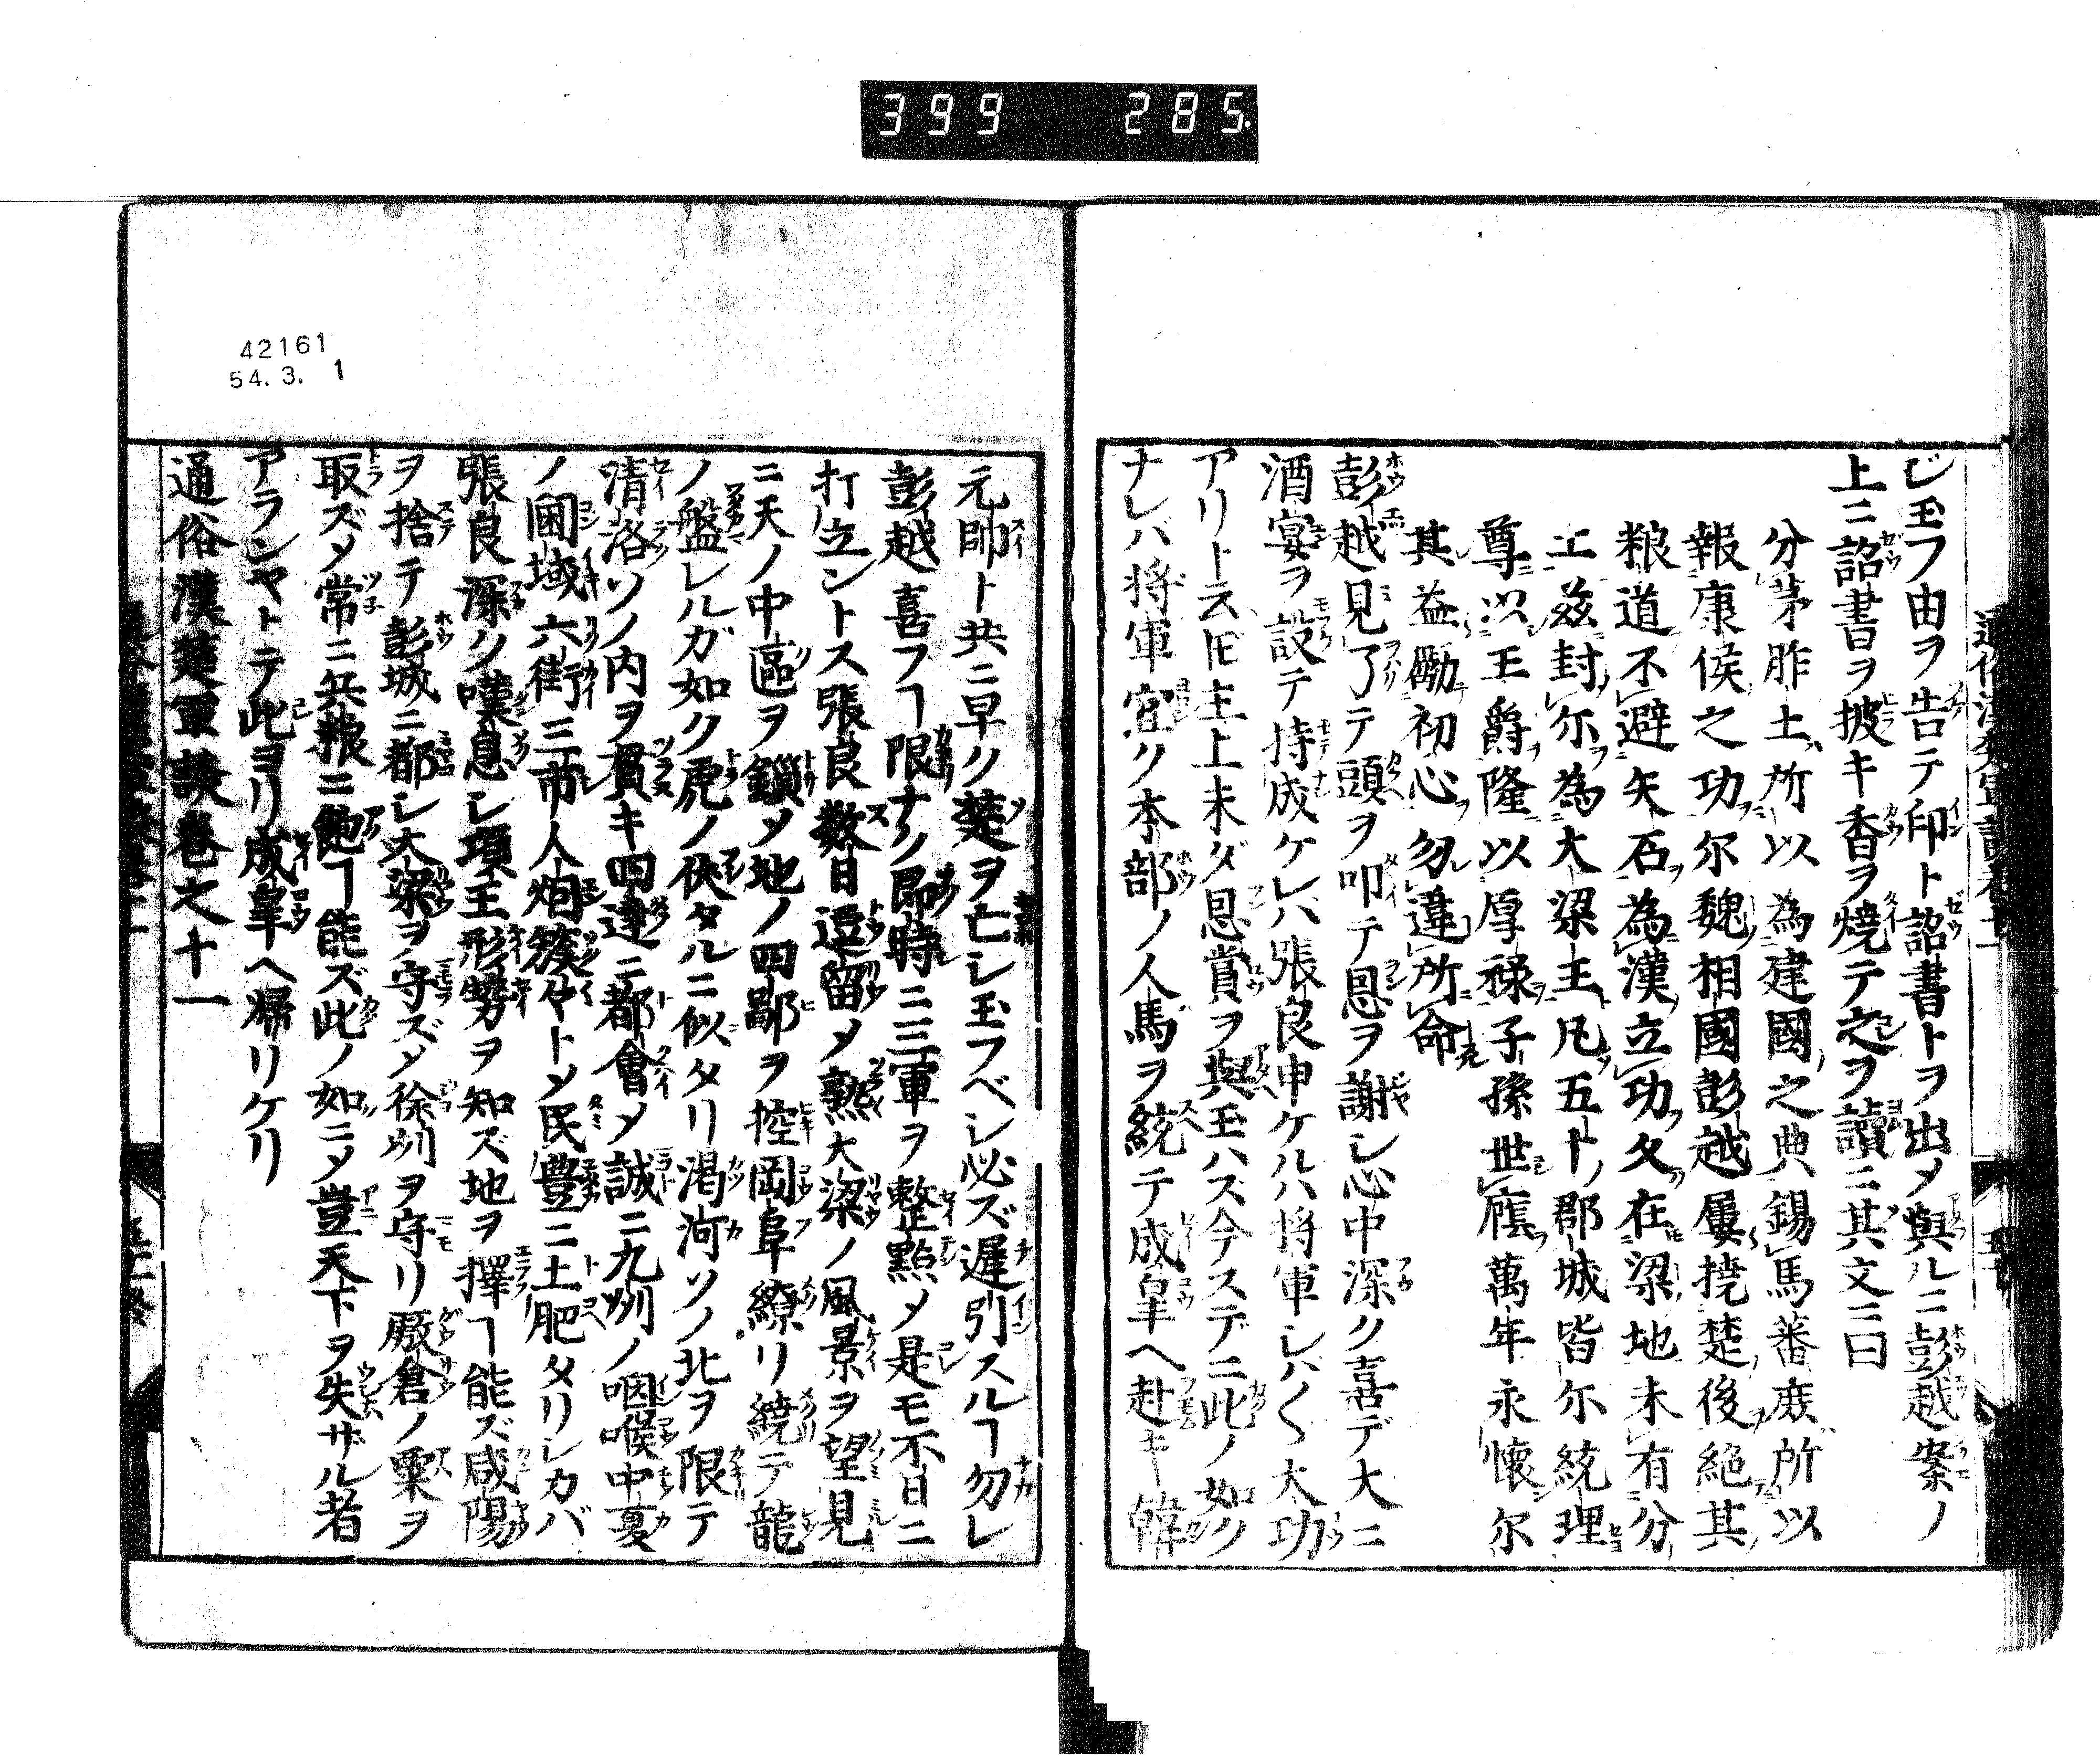 399 285.
ジ玉フ由ヲ告テ印ト詔書トヲ出メ與ルニ彭越案ノ
上ニ詔書ヲ披キ香ヲ燒テ之ヲ讀ニ其文ニ曰
分茅胙土所以為建國之典錫馬蕃庶所以
報康侯之功尔魏相國彭越屢撓楚後絶其
粮道不避矢石為漢立功久在梁地未有分
工兹封尔為大梁王凡五十郡城皆尔統理
尊以王爵隆以厚禄子孫世廕萬年永懷尔
其益勵初心勿違所命
彭越見了テ頭ヲ叩テ恩ヲ謝シ心中深ク喜デ大ニ
酒宴ヲ設テ持成ケレバ張良申ケルハ将軍シハ〱大功
アリト云𪜈主上未ダ恩賞ヲ與玉ハズ今スデニ此ノ如ク
ナレバ将軍宜ク本部ノ人馬ヲ統テ成皐ヘ赴キ韓
元帥ト共ニ早ク楚ヲ亡シ玉フベシ必ズ遅引スルヿ勿レ
彭越喜フヿ限ナク即時ニ三軍ヲ整點メ是モ不日ニ
打立ントス張良数日逗留メ熟大梁ノ風景ヲ望見
ニ天ノ中區ヲ鎻メ地ノ四鄙ヲ控岡阜繚リ繞テ龍
ノ盤レルガ如ク虎ノ伏タルニ似タリ濁河ソノ北ヲ限テ
清洛ソノ内ヲ貫キ四達ニ都會メ誠ニ九州ノ咽喉中夏
ノ閫域六街三市人烟簇々トメ民豊ニ土肥タリシカバ
張良深ク嘆息シ項王形勢ヲ知ズ地ヲ擇ヿ能ズ咸陽
ヲ捨テ彭城ニ都シ大梁ヲ守ズメ徐州ヲ守リ厫倉ノ粟ヲ
取ズメ常ニ兵粮ニ飽ヿ能ズ此ノ如ニメ豈天下ヲ失ザル者
アランヤトテ此ヨリ成皐ヘ帰リケリ
通俗漢楚軍談巻之十一
42161
54.3. 1